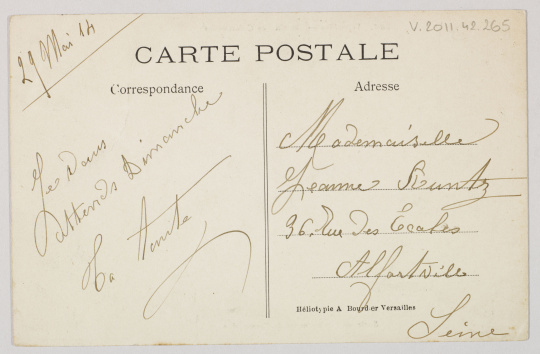 V.2011.42.265
29 Mai 14
CARTE POSTALE
Correspondance
Je vous
attends Dimanche
Ta tante
Adresse
Mademaiselle
Jeanne Kuntz
36. Rue des Ecoles
Alfortville
Seine
Héliotypie A Bourdier Versailles